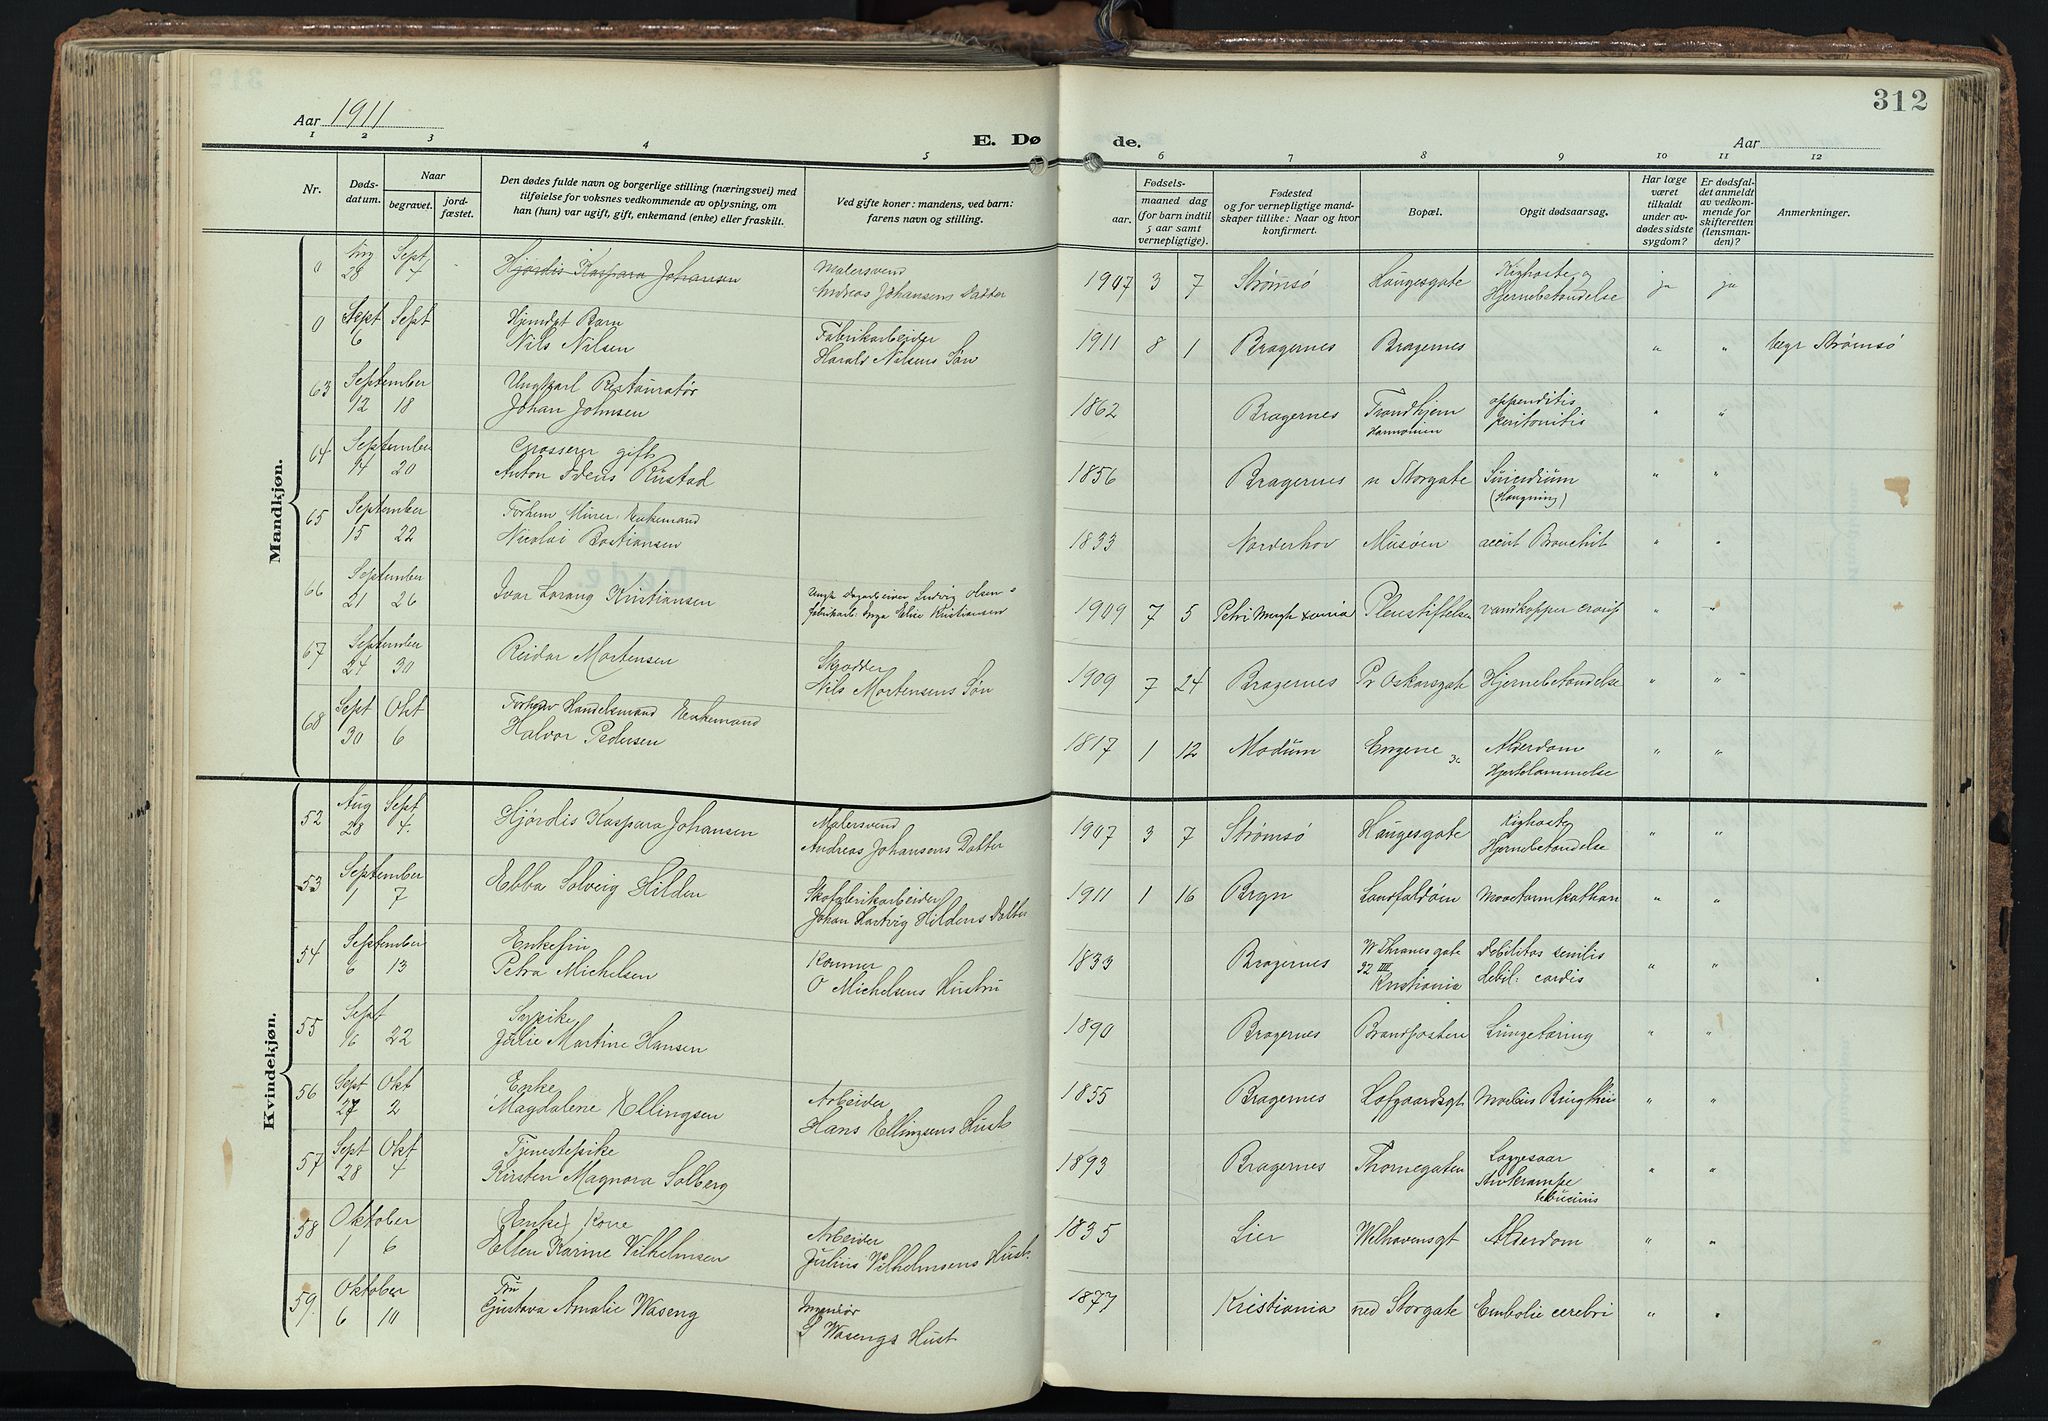 312
Aar 1911
E. Dø de.
Aar
1 2 3 4 5 6 7 8 9 10 11 12
Nr.
Døds-
datum.
Naar
begravet.
jord-
fæstet.
Den dødes fulde navn og borgerlige stilling (næringsvei) med
tilføielse for voksnes vedkommende av oplysning, om
han (hun) var ugift, gift, enkemand (enke) eller fraskilt.
Ved gifte koner: mandens, ved barn:
farens navn og stilling.
Fødsels-
aar. maaned dag
(for barn indtil
5 aar samt
vernepligtige).
Fødested
og for vernepligtige mand-
skaper tillike: Naar og hvor
konfirmert.
Bopæl.
Opgit dødsaarsag.
Har læge
været
tilkaldt
under av-
dødes sidste
sygdom?
Er dødsfal-
det anmeldt
av vedkom-
mende for
skifteretten
(lensman-
den)?
Anmerkninger.
Mandkjøn.
0 Aug Sept Malersvend Kighoste og
28 4 Hjördis Kaspara Johansen Andreas Johansens Datter 1907 3 7 Strømsø Haugesgate Hjernebetændelse ja ja
0 Sept Sept Hjemdøpt Barn Fabrikarbeider
6 Nils Nilsen Harald Nilsens Søn 1911 8 1 Bragernes Bragernes " " begr Strømsø
63 September Ungkarl Restauratør Trondhjem appenditis
12 18 Johan Johnsen 1862 Bragernes Harmonien peritonitis " "
64 September Grosserer gift Suicidium
14 20 Anton Idens Rustad 1856 Bragernes n Storgate (Hængning) " "
65 September Forhenv Murer Enkemand
15 22 Nicolai Bastiansen 1833 Norderhov Musøen accut Bronchit " "
66 September Ungk Dagarbeider Ludvig Olsen o
21 26 Ivar Lorang Kristiansen fabrikarb: Inga Elise Kristiansen 1909 7 5 Petri Mngh xania Plenstiftelse vandkopper croup " "
67 September Skrædder
24 30 Reidar Mortensen Nils Mortensens Søn 1909 7 24 Bragernes Pr Oskarsgate Hjernebetændelse " "
68 Sept Okt Forhenv Handelsmand Enkemand Alderdom
30 6 Halvor Pedersen 1817 1 12 Modum Engene Hjertelammelse " "
Kvindekjøn.
52 Aug Sept Malersvend Kighoste
28 4. Hjørdis Kaspara Johansen Andreas Johansens Datter 1907 3 7 Strømsø Haugesgate Hjernebetændelse " "
53 September Skofabrikarbeider
1 7 Ebba Solveig Hilden Johan Hartvig Hildens Datter 1911 1 16 Brgn Landfaldøen Mavetarmkathar " "
54 September Enkefru W Thranesgate Debilitas senilis
6 13 Petra Michelsen O Michelsens Hustru 1833 Bragernes 32 IIII Kristiania debil: cordis " "
55 Sept Sypike
16 22 Julie Martine Hansen 1890 Bragernes Brandposten Lungetæring " "
56 Sept Okt Enke Arbeider
27 2 Magdalene Ellingsen Hans Ellingsens Hust 1855 Bragernes Hofgaardsgt " "
57 Sept Okt Tjenestepike
28 4 Kirsten Magnora Solberg 1893 Bragernes Thornegaten " "
58 Oktober (Enke) Kone Arbeider
1 6 Ellen Karine Vilhelmsen Julius Vilhelmsens Hust. 1835 Lier Welhavensgt Alderdom " "
59. Oktober Fru Ingeniør
6 10 Gustava Amalie Waseng S Wasengs Hust 1877 Kristiania ned Storgate Embolie cerebri " "